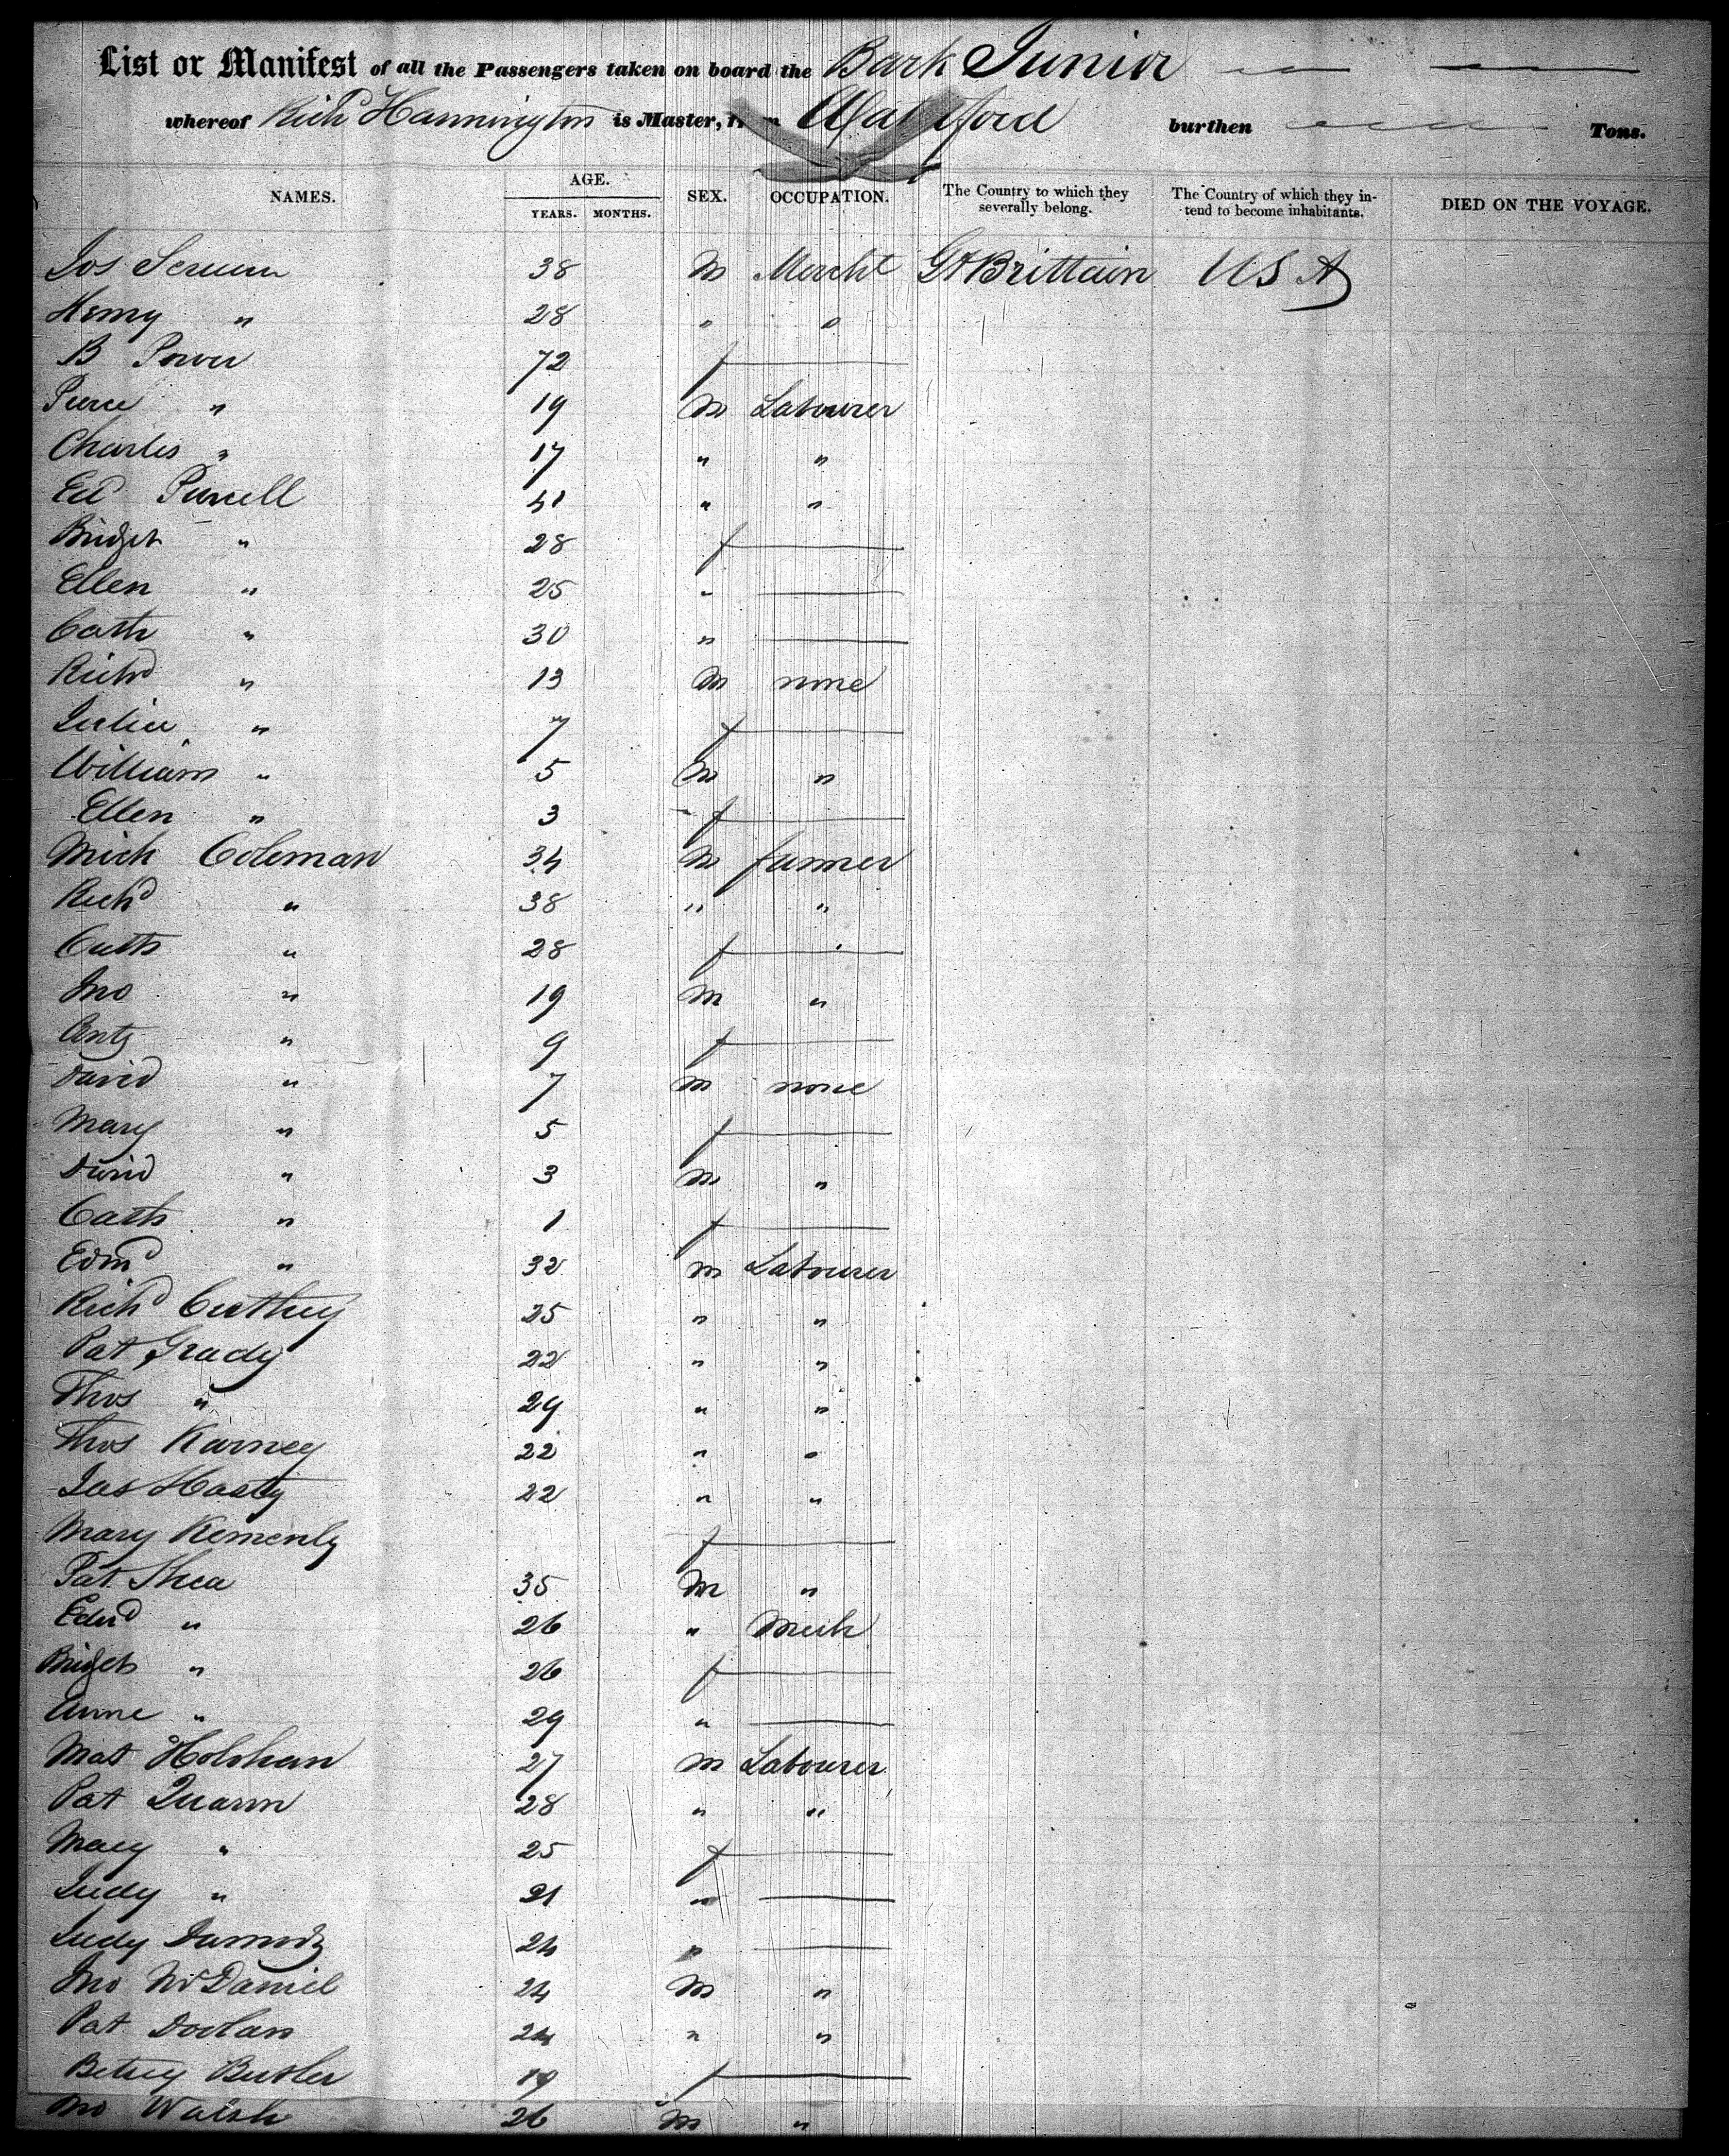 List or Manifest of all the Passengers taken on board the Bark Junior
whereof Richd Hannington is Master, from Waterford burthen Tons.
NAMES. AGE. SEX. OCCUPATION. The Country to which they severally belong. The Country of which they intend to become inhabitants. DIED ON THE VOYAGE.
YEARS. MONTHS.
Jos 38 M Mercht Gt Brittain USA
Henry " 28 " "
B Power 72 f
Pierce " 19 M Labourer
Charles " 17 " "
Ed Purcell 41 " "
Bridget " 28 f
Ellen " 25 "
Cath " 30 "
Richd " 13 M none
Julia " 7 f
William " 5 M "
Ellen " 3 f
Mich Coleman 34 M farmer
Richd " 38 " "
Cath " 28 f
Jno " 19 M "
Anty " 9 f
David " 7 M none
Mary " 5 f
David " 3 M "
Cath " 1 f
Edmd " 32 M Labourer
Richd 25 " "
Pat Grady 22 " "
Thos " 29 " "
Thos Karney 22 " "
Jas Hasty 22 " "
Mary f
Pat Shea 35 M "
Edwd " 26 " Mech
Bridget " 26 f
Anne " 29 "
Mat Holohan 27 M Labourer
Pat 28 " "
Mary " 25 f
Judy " 21 "
Judy 24 "
Jno McDaniel 24 M "
Pat Doolan 24 " "
Betsey Butler 19 f
Jno Walsh 26 M "